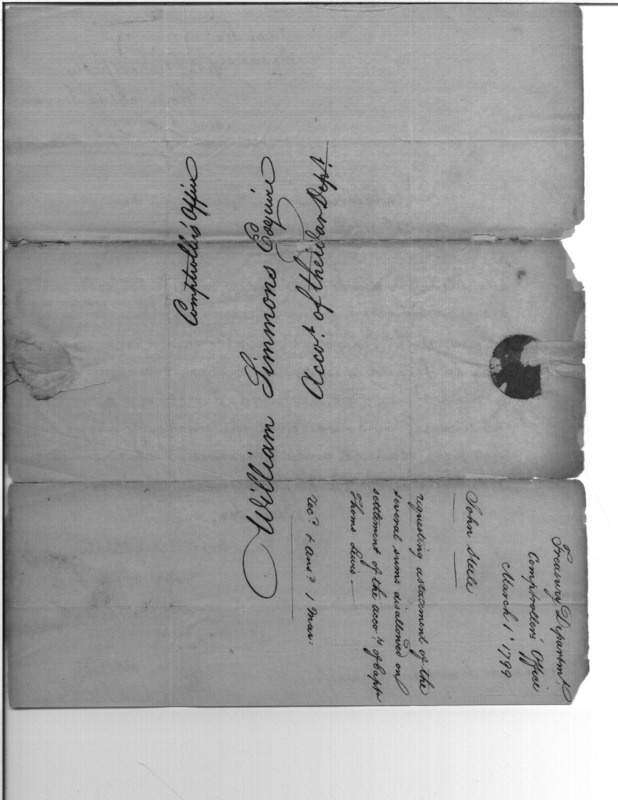 Comptroller's Office
William Simmons Esquire
Accot. of the War Dept.
Treasury Departmt
Comptrollers Office
March 1t 1799
John Steele
requesting a statement of the
several sums disallowed on
settlement of the accots of Capt
Thoms Lewis
recd & ansd 1 Mar: